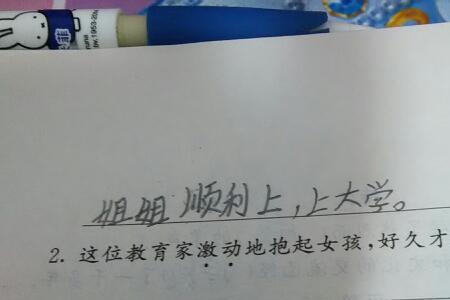 姐姐顺利上,上大学。
2. 这位教育家激动地抱起女孩,好久才